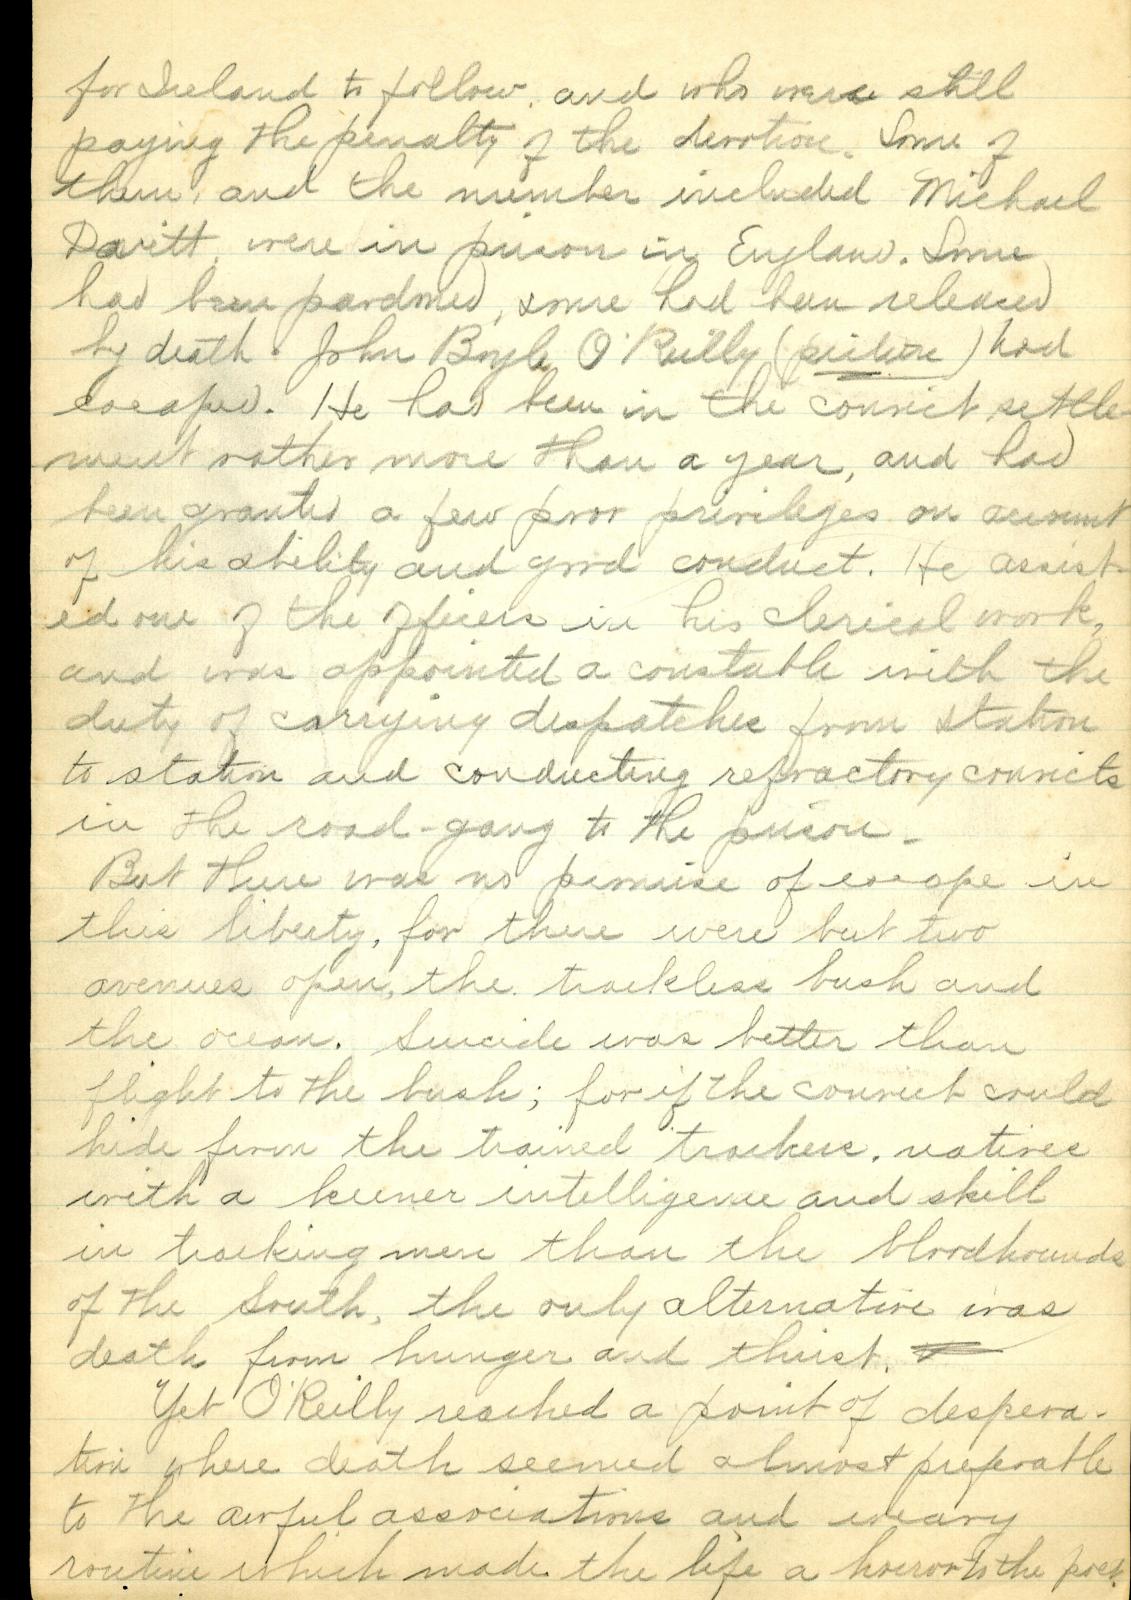 for Ireland to follow, and who were still
paying the penalty of the devotion. Some of
them, and the number included Michael
Davitt, were in prison in England. Some
had been pardoned, some had been released
by death. John Boyle O'Reilly (picture) had
escaped. He had been in the convict settle-
ment rather more than a year, and had
been granted a few poor privileges on account
of his ability and good conduct. He assist-
ed one of the officers in his clerical work,
and was appointed a constable with the
duty of carrying despatches from station
to station and conducting refractory convicts
in the road-gang to the prison.
But there was no promise of escape in
this liberty, for there were but two
avenues open, the trackless bush and
the ocean. Suicide was better than
flight to the bush; for if the convict could
hide from the trained trackers, natives
with a keener intelligence and skill
in tracking men than the bloodhounds
of the South, the only alternative was
death from hunger and thirst.
Yet O'Reilly reached a point of despera-
tion where death seemed almost preferable
to the awful associations and weary
routine which made the life a horror to the poet.